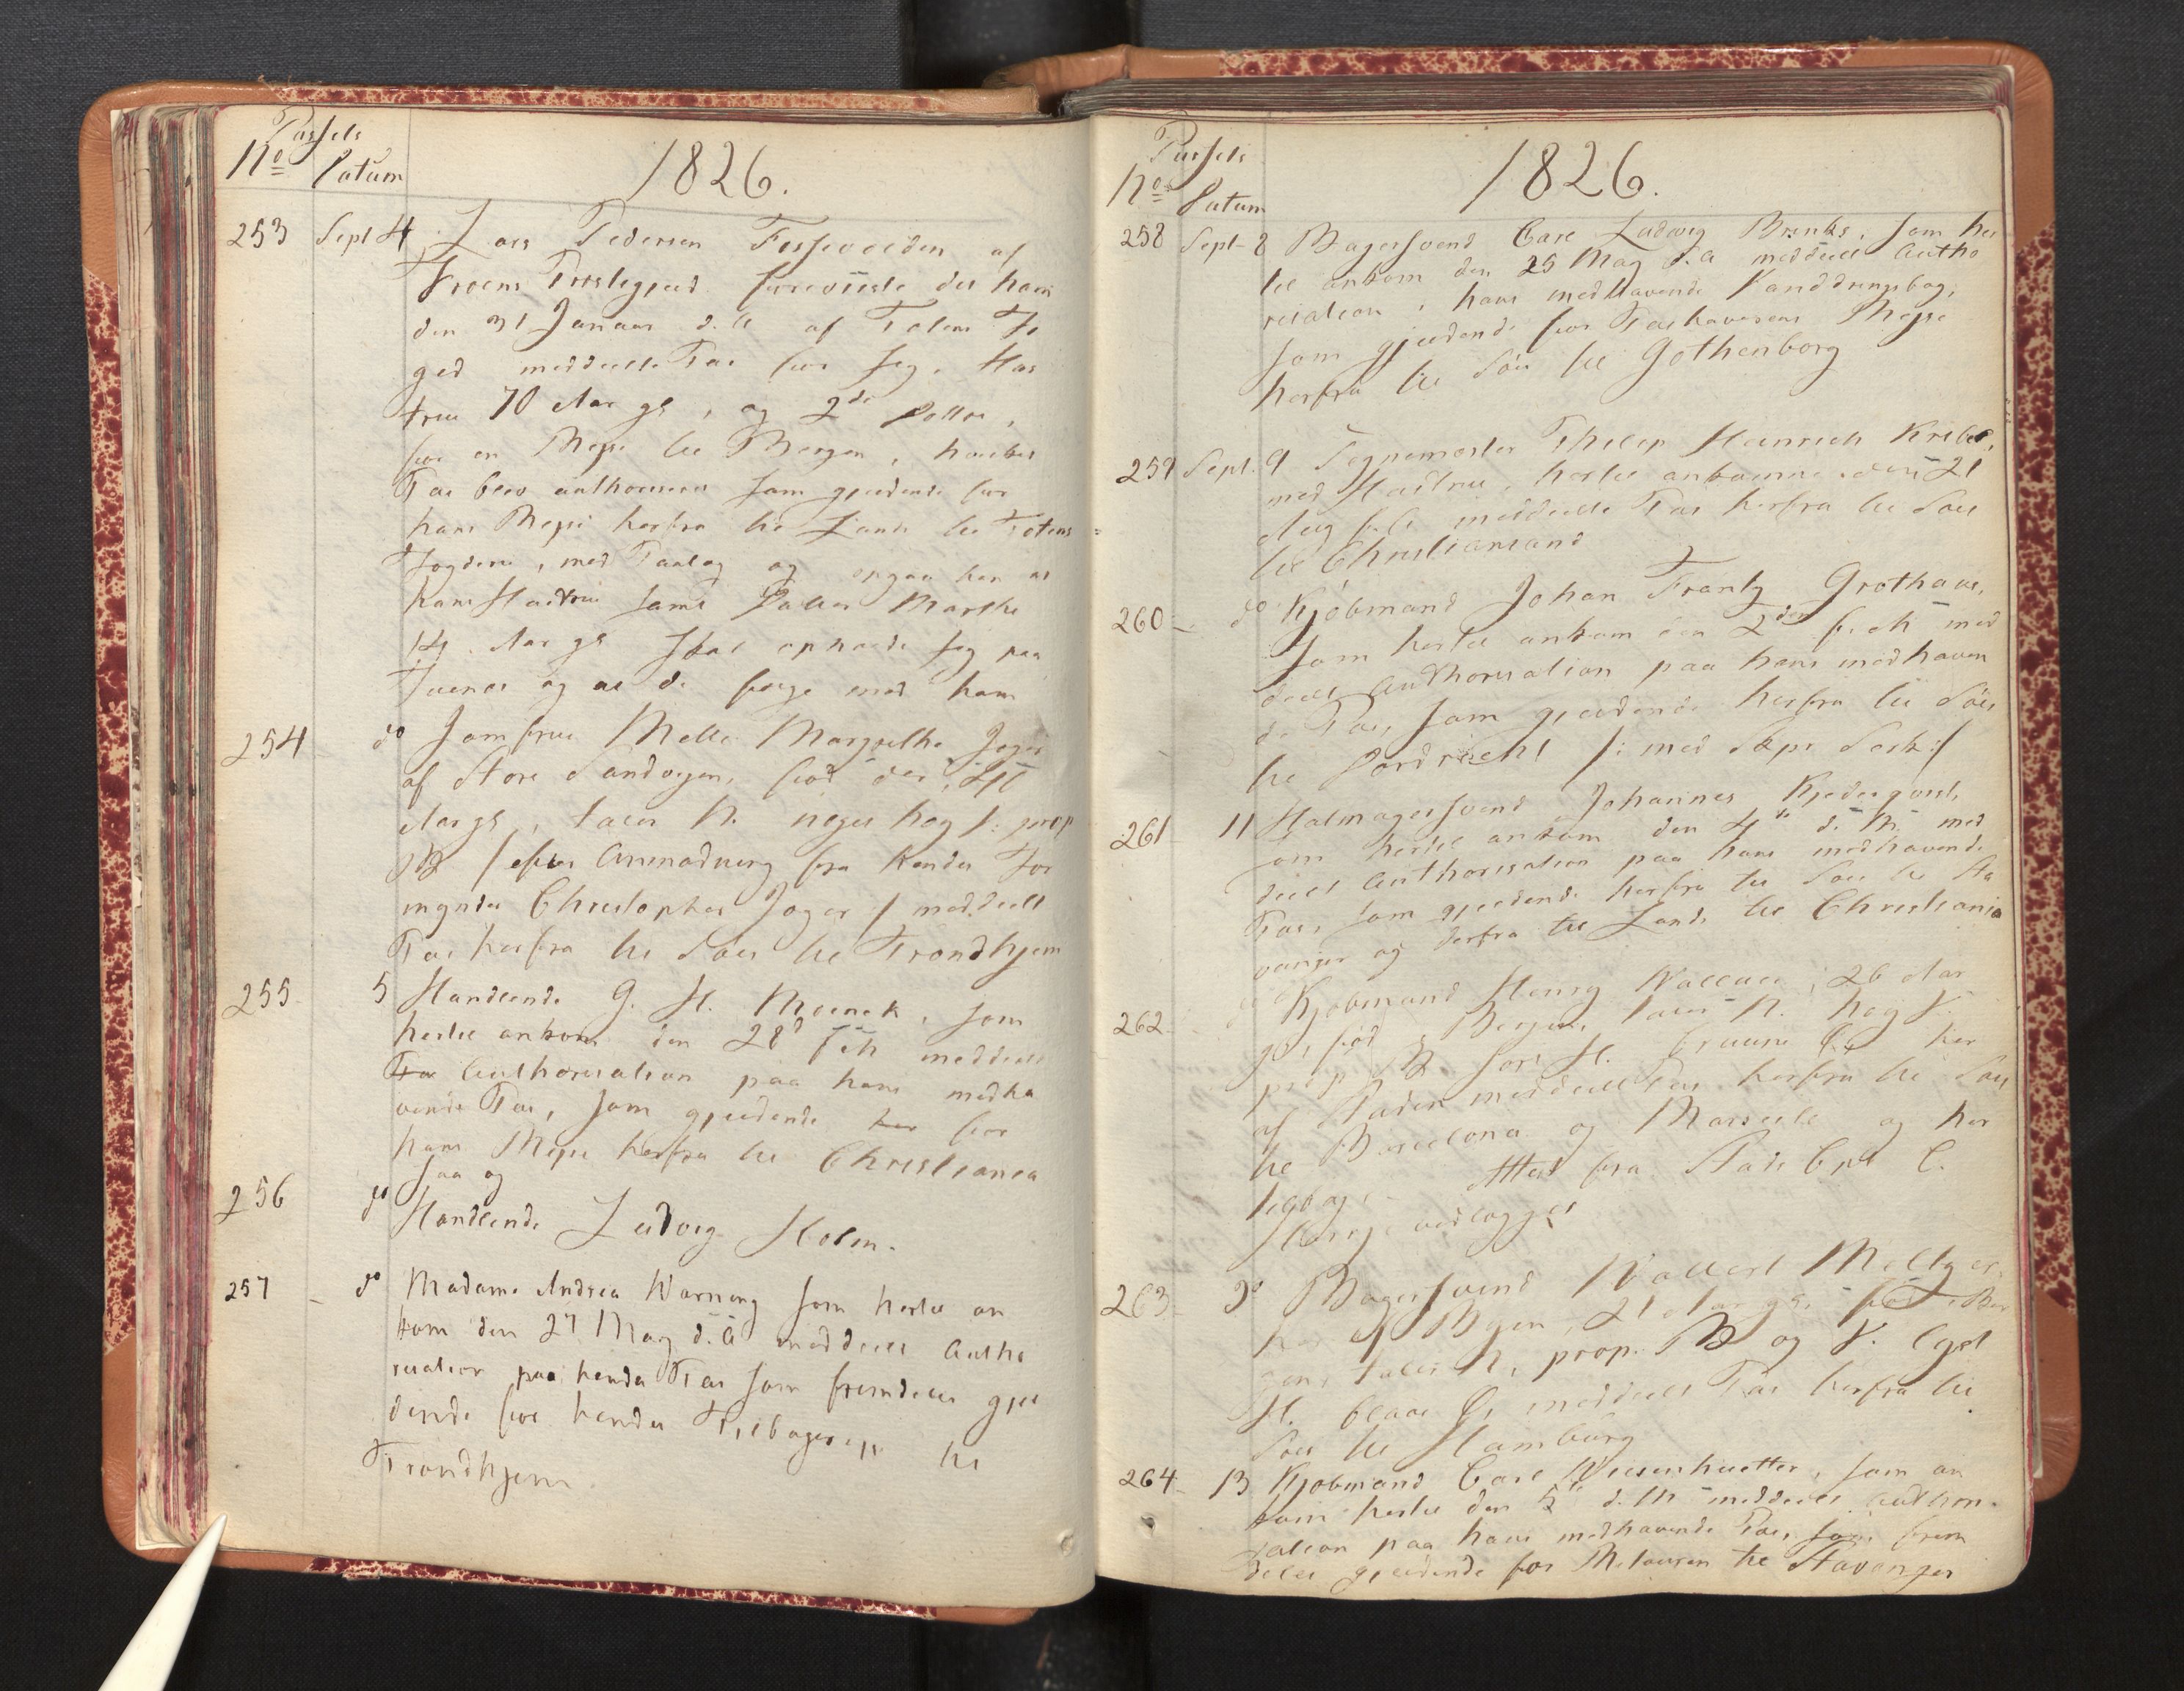 Passets
No Datum
1826.
253 Sept 4 Lars Pedersen Fossveiden af
Froens Præstegjeld foreviiste det ham
den 31 Januar d. A. af Totens Fo
ged meddeelte Pas for sig, Hus
true 70 Aar gl, og 2de Døttre,
for en Rejse til Bergen, hvilket
Pas blev authoriseret som gjældende for
hans Rejse herfra til Lands til Totens
Fogderie, med Paalæg og
hans Hustrue samt Datter Marthe
14 Aar gl skal opholde sig paa
og at de følge med ham
254 do Jomfrue Mette Margrethe Jæger
af Store Sandvigen, fød der, 41
Aar gl, taler N. meget høy /: prop
B / efter Anmodning fra hendes For
mynder Christopher Jæger / meddeelt
Pas herfra til Søes til Trondhjem
255 5 Handlende G. H. Meinck, som
hertil ankom den 28d f. M meddeelt
Pa Authorisation paa hans medha
vende Pas, som gjældende her for
hans Rejse herfra til Christiania
saa og
256 do Handlende Ludvig Holm.
257 - do Madame Andrea Warning som hertil an
kom den 27 May d. A meddeelt Autho
risation paa hendes Pas som fremdeles gjel
dende for hendes Tilbagerejse til
Trondhjem
Passets
No Datum
1826.
258 Sept 8 Bagersvend Carl Ludvig Brinks, som her
til ankom den 25 May d. A meddeelt Autho
risation i hans medhavende Vandringsbog,
som gjeldende for Pashaverens Rejse
herfra til Søes til Gothenborg
259 Sept. 9 Tegnemester Philip Heinrich Kriebel,
med Hustrue, hertil ankomne den 21
Aug f. A. meddeelt Pas herfra til Søes
til Christiansand
260 - do Kjøbmand Johan Frantz Grothaus,
som hertil ankom den 2den f. M med
deelt Authorisation paa hans medhaven
de Pas, som gjældende herfra til Søes
til Dordrecht /: med Skpr :/
261 11 Hatmagersvend Johannes
som hertil ankom den 4de d. M. med
deelt Authorisation paa hans medhavende
Pas, som gjeldende herfra til Søes til Sta
vanger og derfra til Lands til Christiania
262 do Kjøbmand Henry Wallace, 26 Aar
gl, fød i Bergen, taler N. høy V.
prop B sort H. bruune Ø. her
af Staden meddeelt Pas herfra til Søes
til Barcelona og Marseille og her
tilbage. Attest fra Stads Cpt C.
vedlagges
263 do Bagersvend Wallert Meltzer,
her af Byen, 21 Aar gl, fød i Ber
gen, taler N, prop. B og V. lyst
H. blaae Ø, meddeelt Pas herfra til
Søes til Hamburg
264 13 Kjøbmand Carl Wiesenhuetter, som an
kom hertil den 5te d. M meddeelt Authori-
sation paa hans medhavende Pas, som frem
deles gjeldende for Retouren til Stavanger